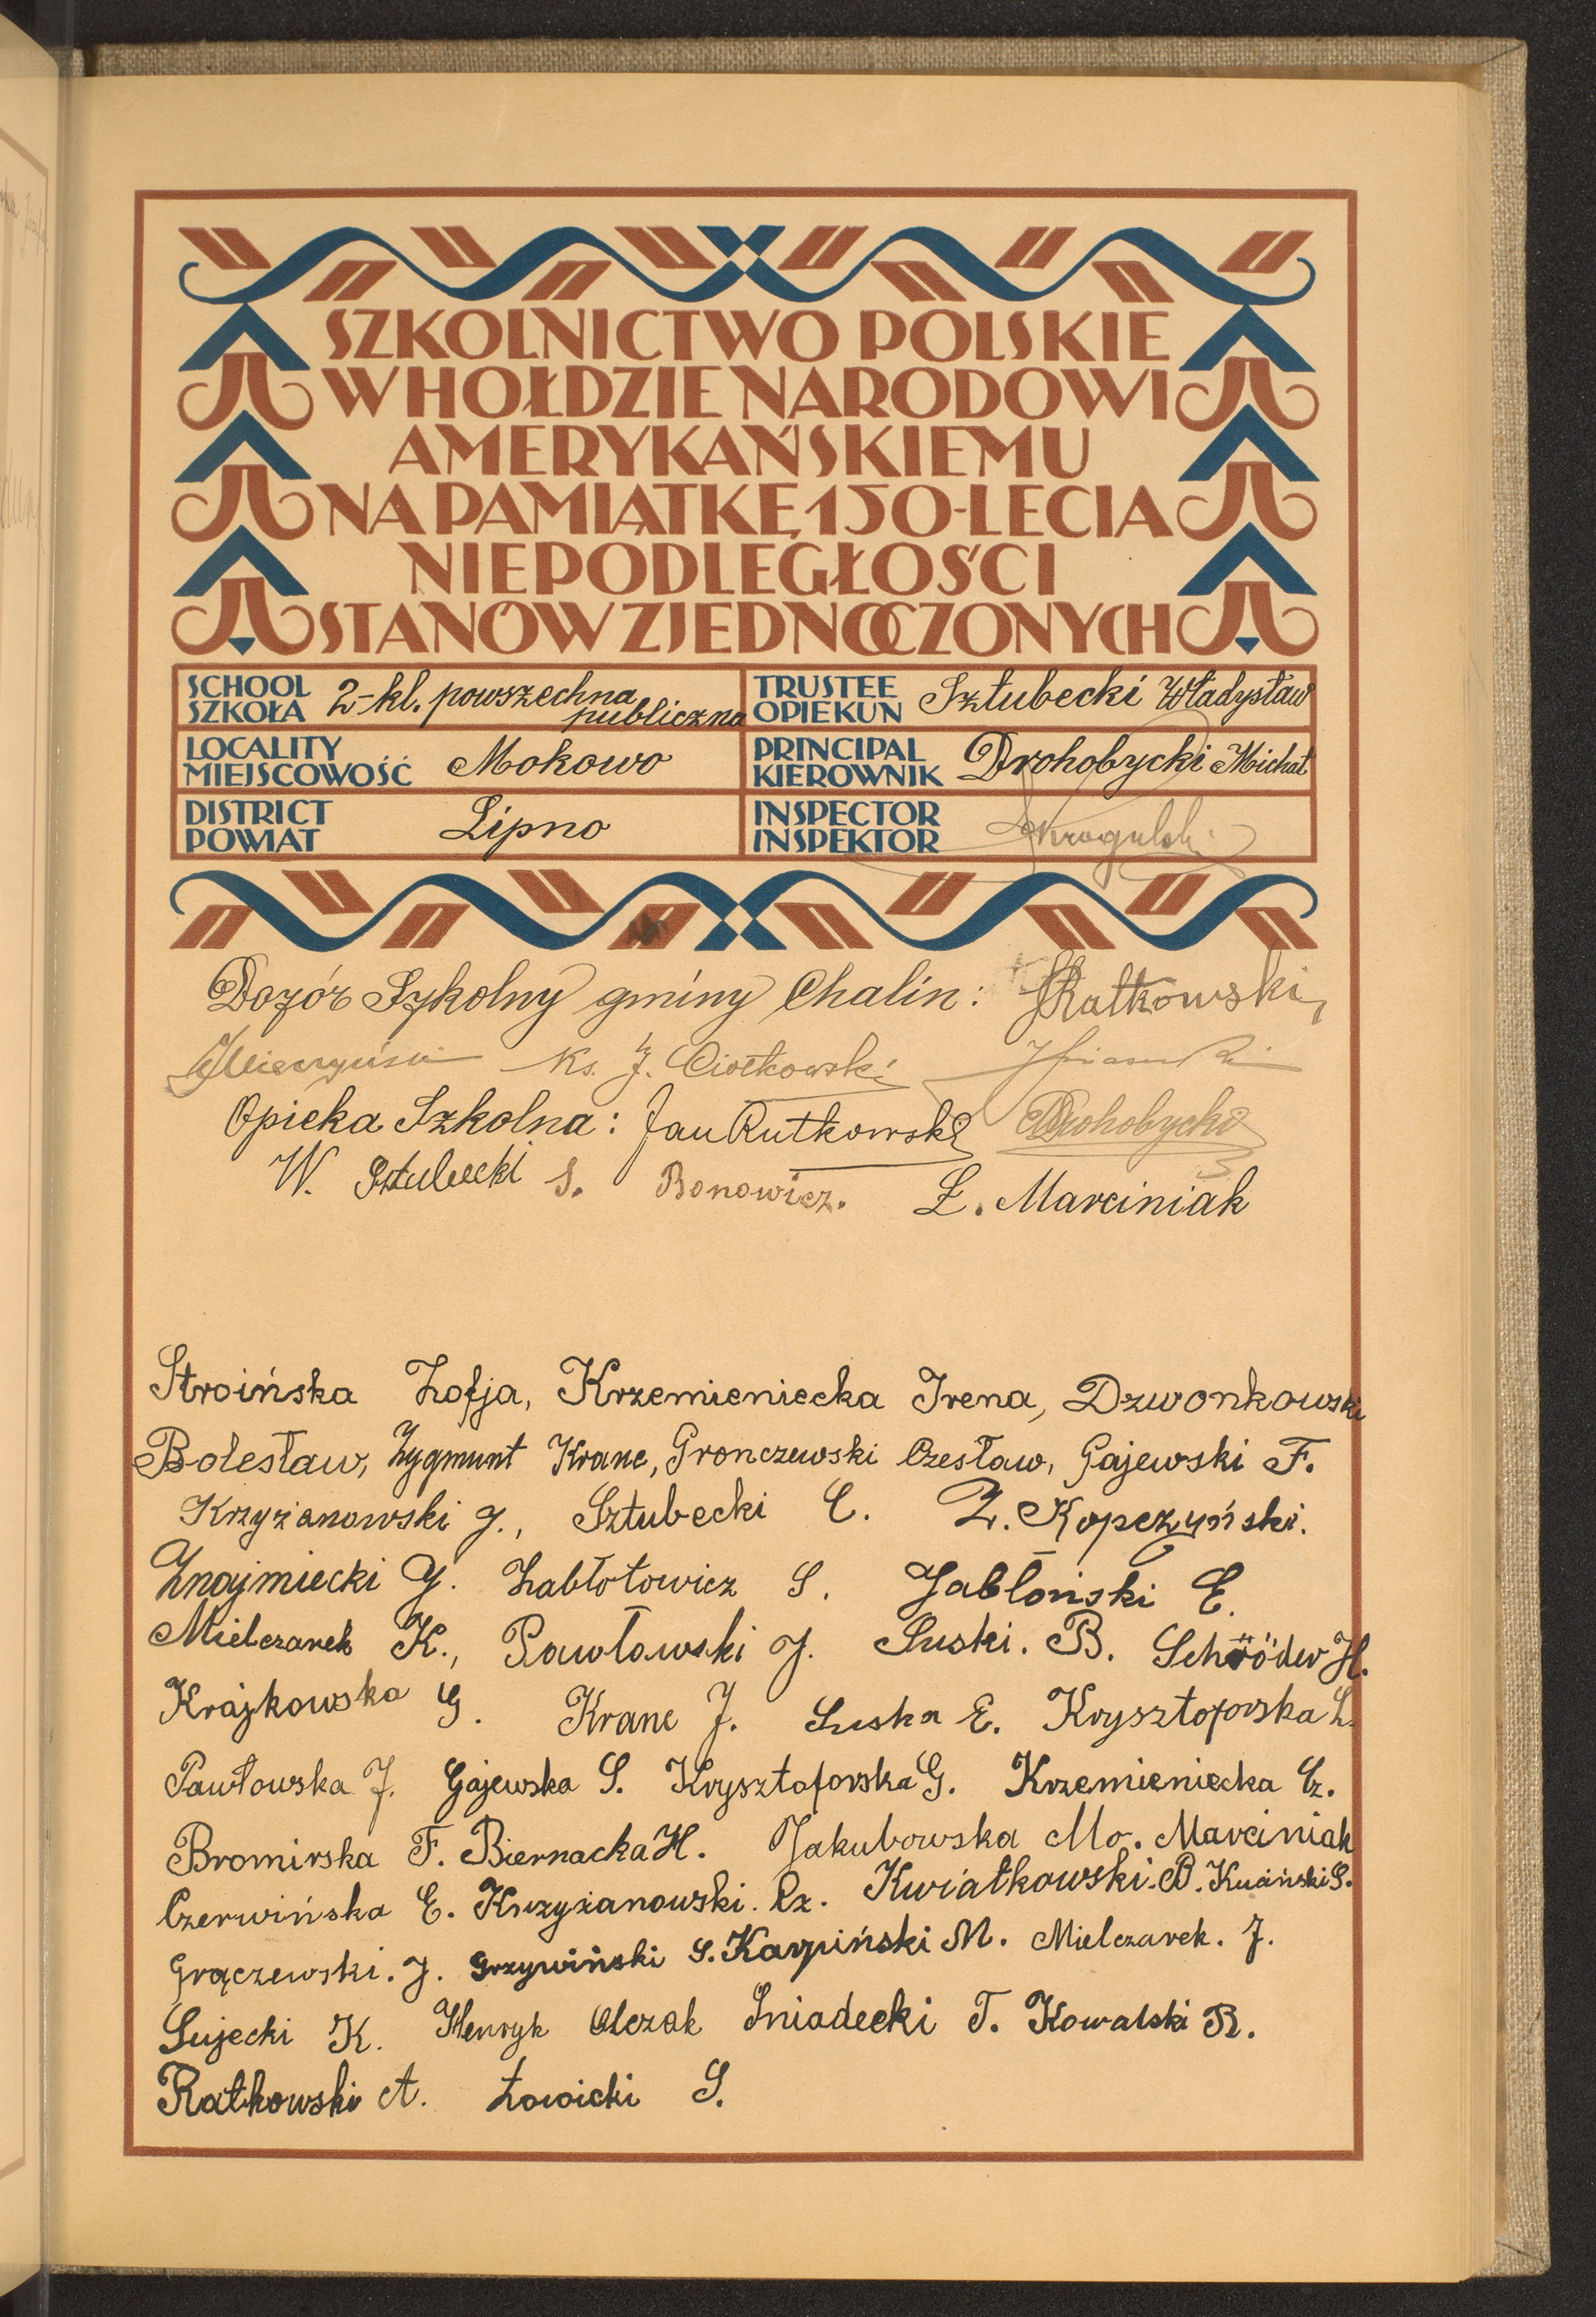 SZKOLNICTWO POLSKIE
W HOŁDZIE NARODOWI
AMERYKAŃSKIEMU
NA PAMIĄTKĘ 150-LECIA
NIEPODLEGŁOŚCI
STANÓW ZJEDNOCZONYCH
SCHOOL SZKOŁA 2-kl. powszechna publiczna
TRUSTEE OPIEKUN Sztubecki Władysław
LOCALITY MIEJSCOWOŚĆ Mokowo
PRINCIPAL KIEROWNIK Drohobycki Michał
DISTRICT POWIAT Lipno
INSPECTOR INSPEKTOR
Dozór Szkolny gminy Chalin: Ratkowski,
Ks. J. Ciołkowski
Opieka Szkolna: Jan Rutkowski Drohobycki
W. Sztubecki S. Bonowicz. Ł. Marciniak
Stroińska Zofja, Krzemieniecka Irena, Dzwonkowski
Bolesław, Zygmunt Krane, Gronczewski Czesław, Gajewski F.
Krzyżanowski J., Sztubecki C. Z. Kopczyński.
Znajmiecki J. Zabłotowicz S. Jabłoński E.
Mielczarek K., Pawłowski J. Suski. B. Schröder H.
Krajkowska G. Krane J. Suska E. Krysztoforska Z.
Pawłowska J. Gajewska S. Krysztoforska G. Krzemieniecka Cz.
Bromirska F. Biernacka H. Jakubowska Ma. Marciniak
Czerwińska E. Krzyżanowski. Cz. Kwiatkowski. B. Kuciński S.
Grączewski. J. Grzywiński S. Karpiński M. Mielczarek. J.
Sujecki K. Henryk Olczak Śniadecki T. Kowalski R.
Ratkowski A. Łowicki S.